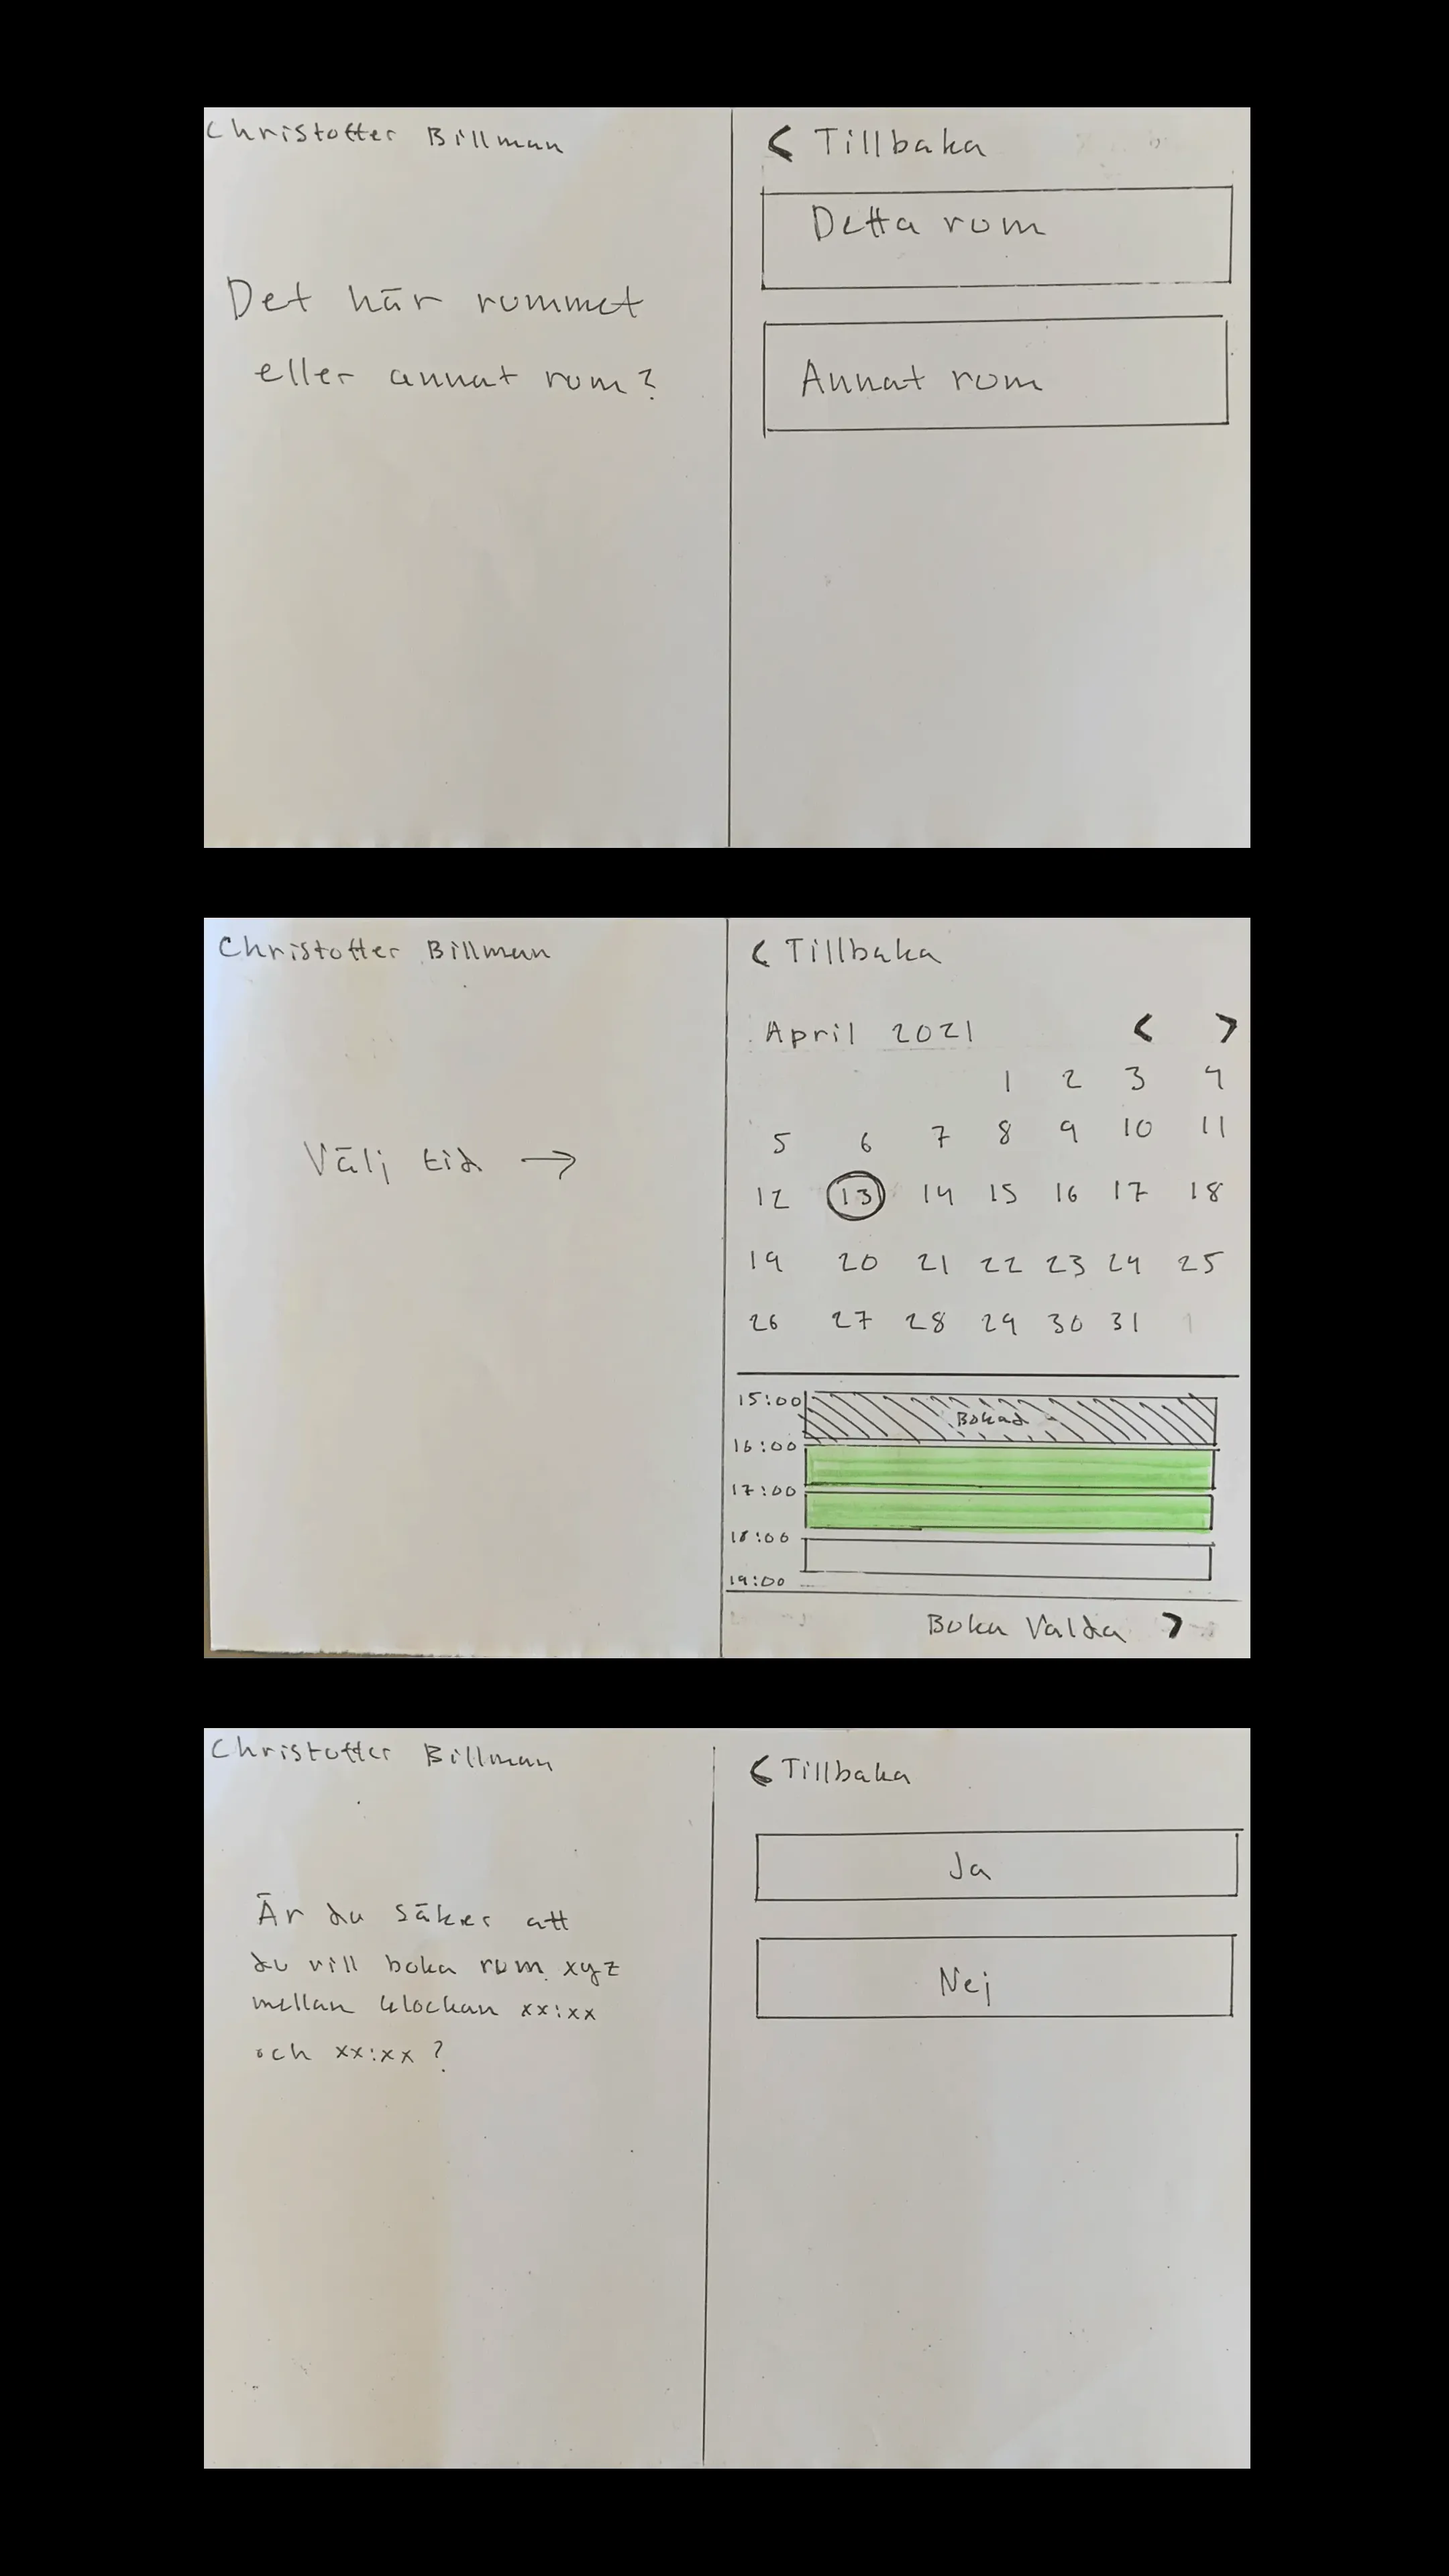 Christoffer Billman
Det här rummet
eller annat rum?
< Tillbaka
Detta rum
Annat rum
Christoffer Billman
Välj tid →
< Tillbaka
April 2021 < >
1 2 3 4
5 6 7 8 9 10 11
12 13 14 15 16 17 18
19 20 21 22 23 24 25
26 27 28 29 30 31 1
15:00
Bokad
16:00
17:00
18:00
19:00
Boka Valda >
Christoffer Billman
Är du säker att
du vill boka rum xyz
mellan klockan xx:xx
och xx:xx ?
< Tillbaka
Ja
Nej